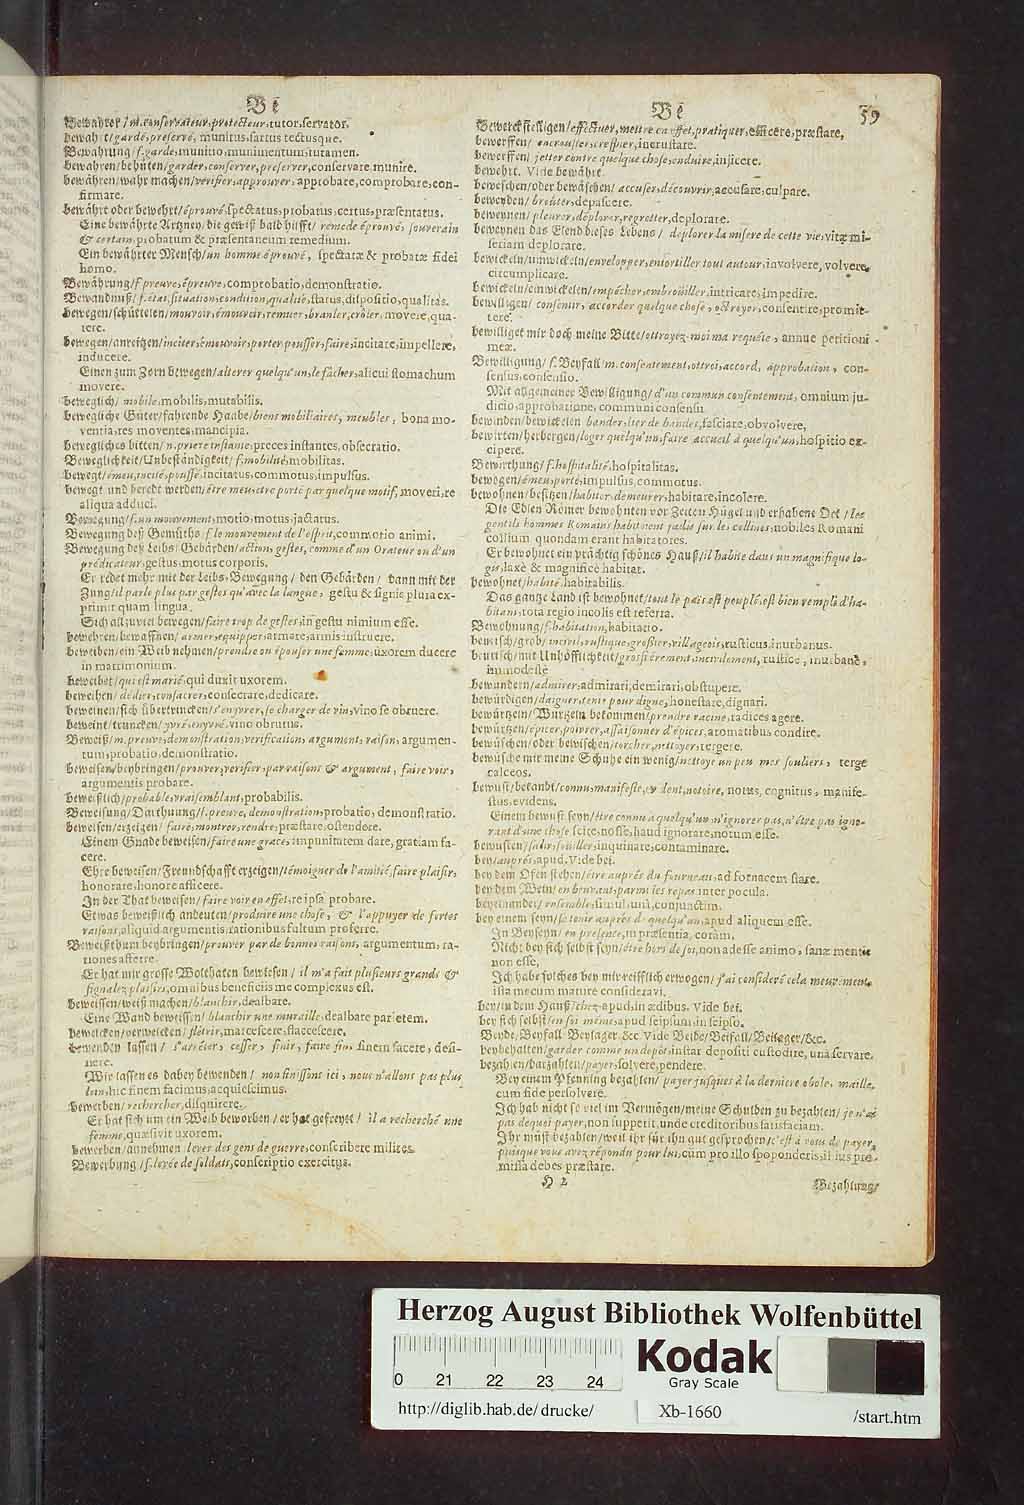 Be
Bewahrer / m. conservateur, protecteur, tutor, servator.
bewahrt / gardé, preservé, munitus, sartus tectusque.
Bewahrung / f. garde, munitio, munimentum, tutamen.
bewahren / behüten / garder, conserver, preserver, conservare, munire.
bewähren / wahr machen / verifier, approuver, approbare, comprobare, con-
firmare.
bewährt oder bewehrt / éprouvé, spectatus, probatus, certus, præsentatus.
Eine bewährte Artzney / die gewiß bald hilfft / remede éprouvé, souverain
& certain, probatum & præsentaneum remedium.
Ein bewährter Mensch / un homme éprouvé, spectatæ & probatæ fidei
homo.
Bewährung / f. preuve, épreuve, comprobatio, demonstratio.
Bewandniß / f. état, situation, condition, qualité, status, dispositio, qualitas.
bewegen / schüttelen / mouvoir, émouvoir, remuer, branler, crôler, movere, qua-
tere.
bewegen / anreitzen / inciter, émouvoir, porter, pousser, faire, incitare, impellere,
inducere.
Einen zum Zorn bewegen / alterer quelqu'un, le facher, alicui stomachum
movere.
beweglich / mobile, mobilis, mutabilis.
bewegliche Güter / fahrende Haabe / biens mobiliaires, meubles, bona mo-
ventia, res moventes, mancipia.
bewegliches bitten / n. priere instante, preces instantes, obsecratio.
Beweglichkeit / Unbeständigkeit / f. mobilité, mobilitas.
bewegt / émeu, incité, poussé, incitatus, commotus, impulsus.
bewegt und beredt werden / étre meu, etre porté par quelque motif, moveri, re
aliqua adduci.
Bewegung / f. un mouvement, motio, motus, jactatus.
Bewegung deß Gemüths / f. le mouvement de l'esprit, commotio animi.
Bewegung deß Leibs / Gebärden / action, gestes, comme d'un Orateur ou d'un
prédicateur, gestus, motus corporis.
Er redet mehr mit der Leibs-Bewegung / den Gebärden / dann mit der
Zung / il parle plus par gestes qu'avec la langue, gestu & signis plura ex-
primit quam lingua.
Sich allzuviel bewegen / faire trop de gestes, in gestu nimium esse.
bewehren / bewaffnen / armer, equipper, armare, armis instruere.
beweiben / ein Weib nehmen / prendre ou épouser une femme, uxorem ducere
in matrimonium.
beweibet / qui est marié, qui duxit uxorem.
beweihen / dedier, consacrer, consecrare, dedicare.
beweinen / sich übertrincken / s'enyvrer, se charger de vin, vino se obruere.
beweint / truncken / yvre, enyvré, vino obrutus.
Beweiß / m. preuve, demonstration, verification, argument, raison, argumen-
tum, probatio, demonstratio.
beweisen / beybringen / prouver, verifier, par raisons & argument, faire voir,
argumentis probare.
beweißlich / probable, vraisemblant, probabilis.
Beweisung / Darthuung / f. preuve, demonstration, probatio, demonstratio.
beweisen / erzeigen / faire, montrer, rendre, præstare, ostendere.
Einem Gnade beweisen / faire une grace, impunitatem dare, gratiam fa-
cere.
Ehre beweisen / Freundschafft erzeigen / témoigner de l'amitié, faire plaisir,
honorare, honore afficere.
In der That beweisen / faire voir en effet, re ipsa probare.
Etwas beweißlich andeuten / produire une chose, & l'appuyer de fortes
raisons, aliquid argumentis, rationibus faltum proferre.
Beweißthum beybringen / prouver par de bonnes raisons, argumentum, ra-
tiones afferre.
Er hat mir grosse Wolthaten bewiesen / il m'a fait plusieurs grands &
signalez plaisirs, omnibus beneficiis me complexus est.
beweissen / weiß machen / blanchir, dealbare.
Eine Wand beweissen / blanchir une muraille, dealbare parietem.
bewelcken / verwelcken / flétrir, marcescere, flaccescere.
bewenden lassen / s'arréter, cesser, finir, faire fin, finem facere, desi-
nere.
Wir lassen es dabey bewenden / nous finissons ici, nous n'allons pas plus
loin, hic finem facimus, acquiescimus.
bewerben / rechercher, disquirere.
Er hat sich um ein Weib beworben / er hat gefreyet / il a recherché une
femme, quæsivit uxorem.
bewerben / annehmen / lever des gens de guerre, conscribere milites.
Bewerbung / f. levée de soldats, conscriptio exercitus.
Be
59
Bewerckstelligen / effectuer, mettre en effet, pratiquer, efficere, præstare,
bewerffen / encrouster, crespiser, incrustare.
bewerffen / jetter contre quelque chose, enduire, injicere.
bewehrt. Vide bewährt.
beweschen / oder bewäschen / accuser, découvrir, accusare, culpare.
beweyden / brouter, depascere.
beweynen / pleurer, déplorer, regretter, deplorare.
beweynen das Elend dieses Lebens / deplorer la misere de cette vie, vitæ mi-
seriam deplorare.
bewickeln / umwickeln / envelopper, entortiller tout autour, involvere, volvere,
circumplicare.
bewickeln / einwickelen / empécher, embrouiller, intricare, impedire.
bewilligen / consentir, accorder quelque chose, octroyer, consentire, promit-
tere.
bewilliget mir doch meine Bitte / ottroyez-moi ma requéte, annue petitioni
meæ.
Bewilligung / f. Beyfall / m. consentement, ottroi, accord, approbation, con-
sensus, consensio.
Mit allgemeiner Bewilligung / d'un commun consentement, omnium ju-
dicio, approbatione, communi consensu
bewinden / bewickelen bander, lier de bandes, fasciare, obvolvere,
bewirten / herbergen / loger quelqu'un, faire accueil à quelqu'un, hospitio ex-
cipere.
Bewirthung / f. hospitalité, hospitalitas.
bewogen / émeu, porté, impulsus, commotus.
bewohnen / besitzen / habiter, demeurer, habitare, incolere.
Die Edlen Römer bewohnten vor Zeiten Hügel und erhabene Ort / les
gentils hommes Romains habitoient jadis sur les collines, nobiles Romani
collium quondam erant habitatores.
Er bewohnet ein prächtig schönes Hauß / il habite dans un magnifique lo-
gis, laxè & magnificè habitat.
bewohnet / habité, habitabilis.
Das gantze Land ist bewohnet / tout le païs est peuplé, est bien rempli d'ha-
bitans, tota regio incolis est referta.
Bewohnung / f. habitation, habitatio.
beurisch / grob / incivil, rustique, grossier, villageois, rusticus, inurbanus.
beurisch / mit Unhöfflichkeit / grossiérement, incivilement, rusticè, inurbanè,
immodestè
bewundern / admirer, admirari, demirari, obstupere.
bewürdigen / daigner, tenir pour digne, honestare, dignari.
bewürtzeln / Wurtzeln bekommen / prendre racine, radices agere.
bewürtzen / épicer, poivrer, assaisonner d'épices, aromatibus condire.
bewüschen / oder bewischen / torcher, nettoyer, tergere.
bewüsche mir meine Schuhe ein wenig / nettoye un peu mes souliers, terge
calceos.
bewust / bekandt / connu, manifeste, evident, notoire, notus, cognitus, manife-
stus, evidens.
Einem bewust seyn / étre connu à quelqu'un, n'ignorer pas, n'étre pas igno-
rant d'une chose, scire, nosse, haud ignorare, notum esse.
bewusten / salir, souiller, inquinare, contaminare.
bey / auprés, apud. Vide bei.
bey dem Ofen stehen / étre auprés du fourneau, ad fornacem stare.
bey dem Wein / en beuvant, parmi les repas, inter pocula.
beyeinander / ensemble, simul, unà, conjunctim.
bey einem seyn / se tenir auprés de quelqu'un, apud aliquem esse.
In Beyseyn / en presence, in præsentia, coràm.
Nicht bey sich selbst seyn / étre hors de soi, non adesse animo, sanæ mentis
non esse,
Ich habe solches bey mir reifflich erwogen / j'ai consideré cela meurement
ista mecum maturè consideravi.
bey / in dem Hauß / chez, apud, in ædibus. Vide bei.
bey sich selbst / en soi méme, apud seipsum, in seipso.
Beyde, Beyfall, Beylager &c. Vide Beide / Beifall / Beilager / &c.
beybehalten / garder comme un depôt, instar depositi custodire, unà servare.
bezahlen / barzahlen / payer, solvere, pendere.
Bey einem Pfenning bezahlen / payer jusques à la derniere obole, maille,
cum fide persolvere.
Ich hab nicht so viel im Vermögen / meine Schulden zu bezahlen / je n'ai
pas dequoi payer, non suppetit, unde creditoribus satisfaciam.
Ihr müst bezahlen / weil ihr für ihn gut gesprochen / c'est à vous de payer,
puisque vous avez répondu pour lui, cùm pro illo spoponderis, illius pro-
missa debes præstare.
H 2
Bezahlung
Herzog August Bibliothek Wolfenbüttel
0 21 22 23 24
Kodak
Gray Scale
http://diglib.hab.de/drucke/
Xb-1660
/start.htm